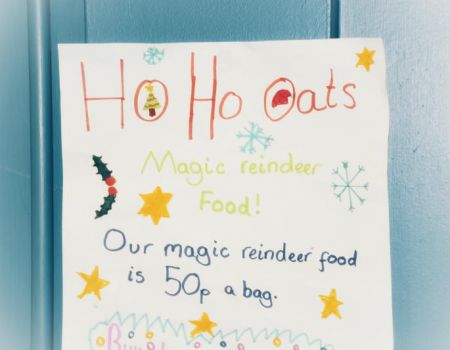 Ho Ho Oats
Magic reindeer
Food!
Our magic reindeer food
is 50p a bag.